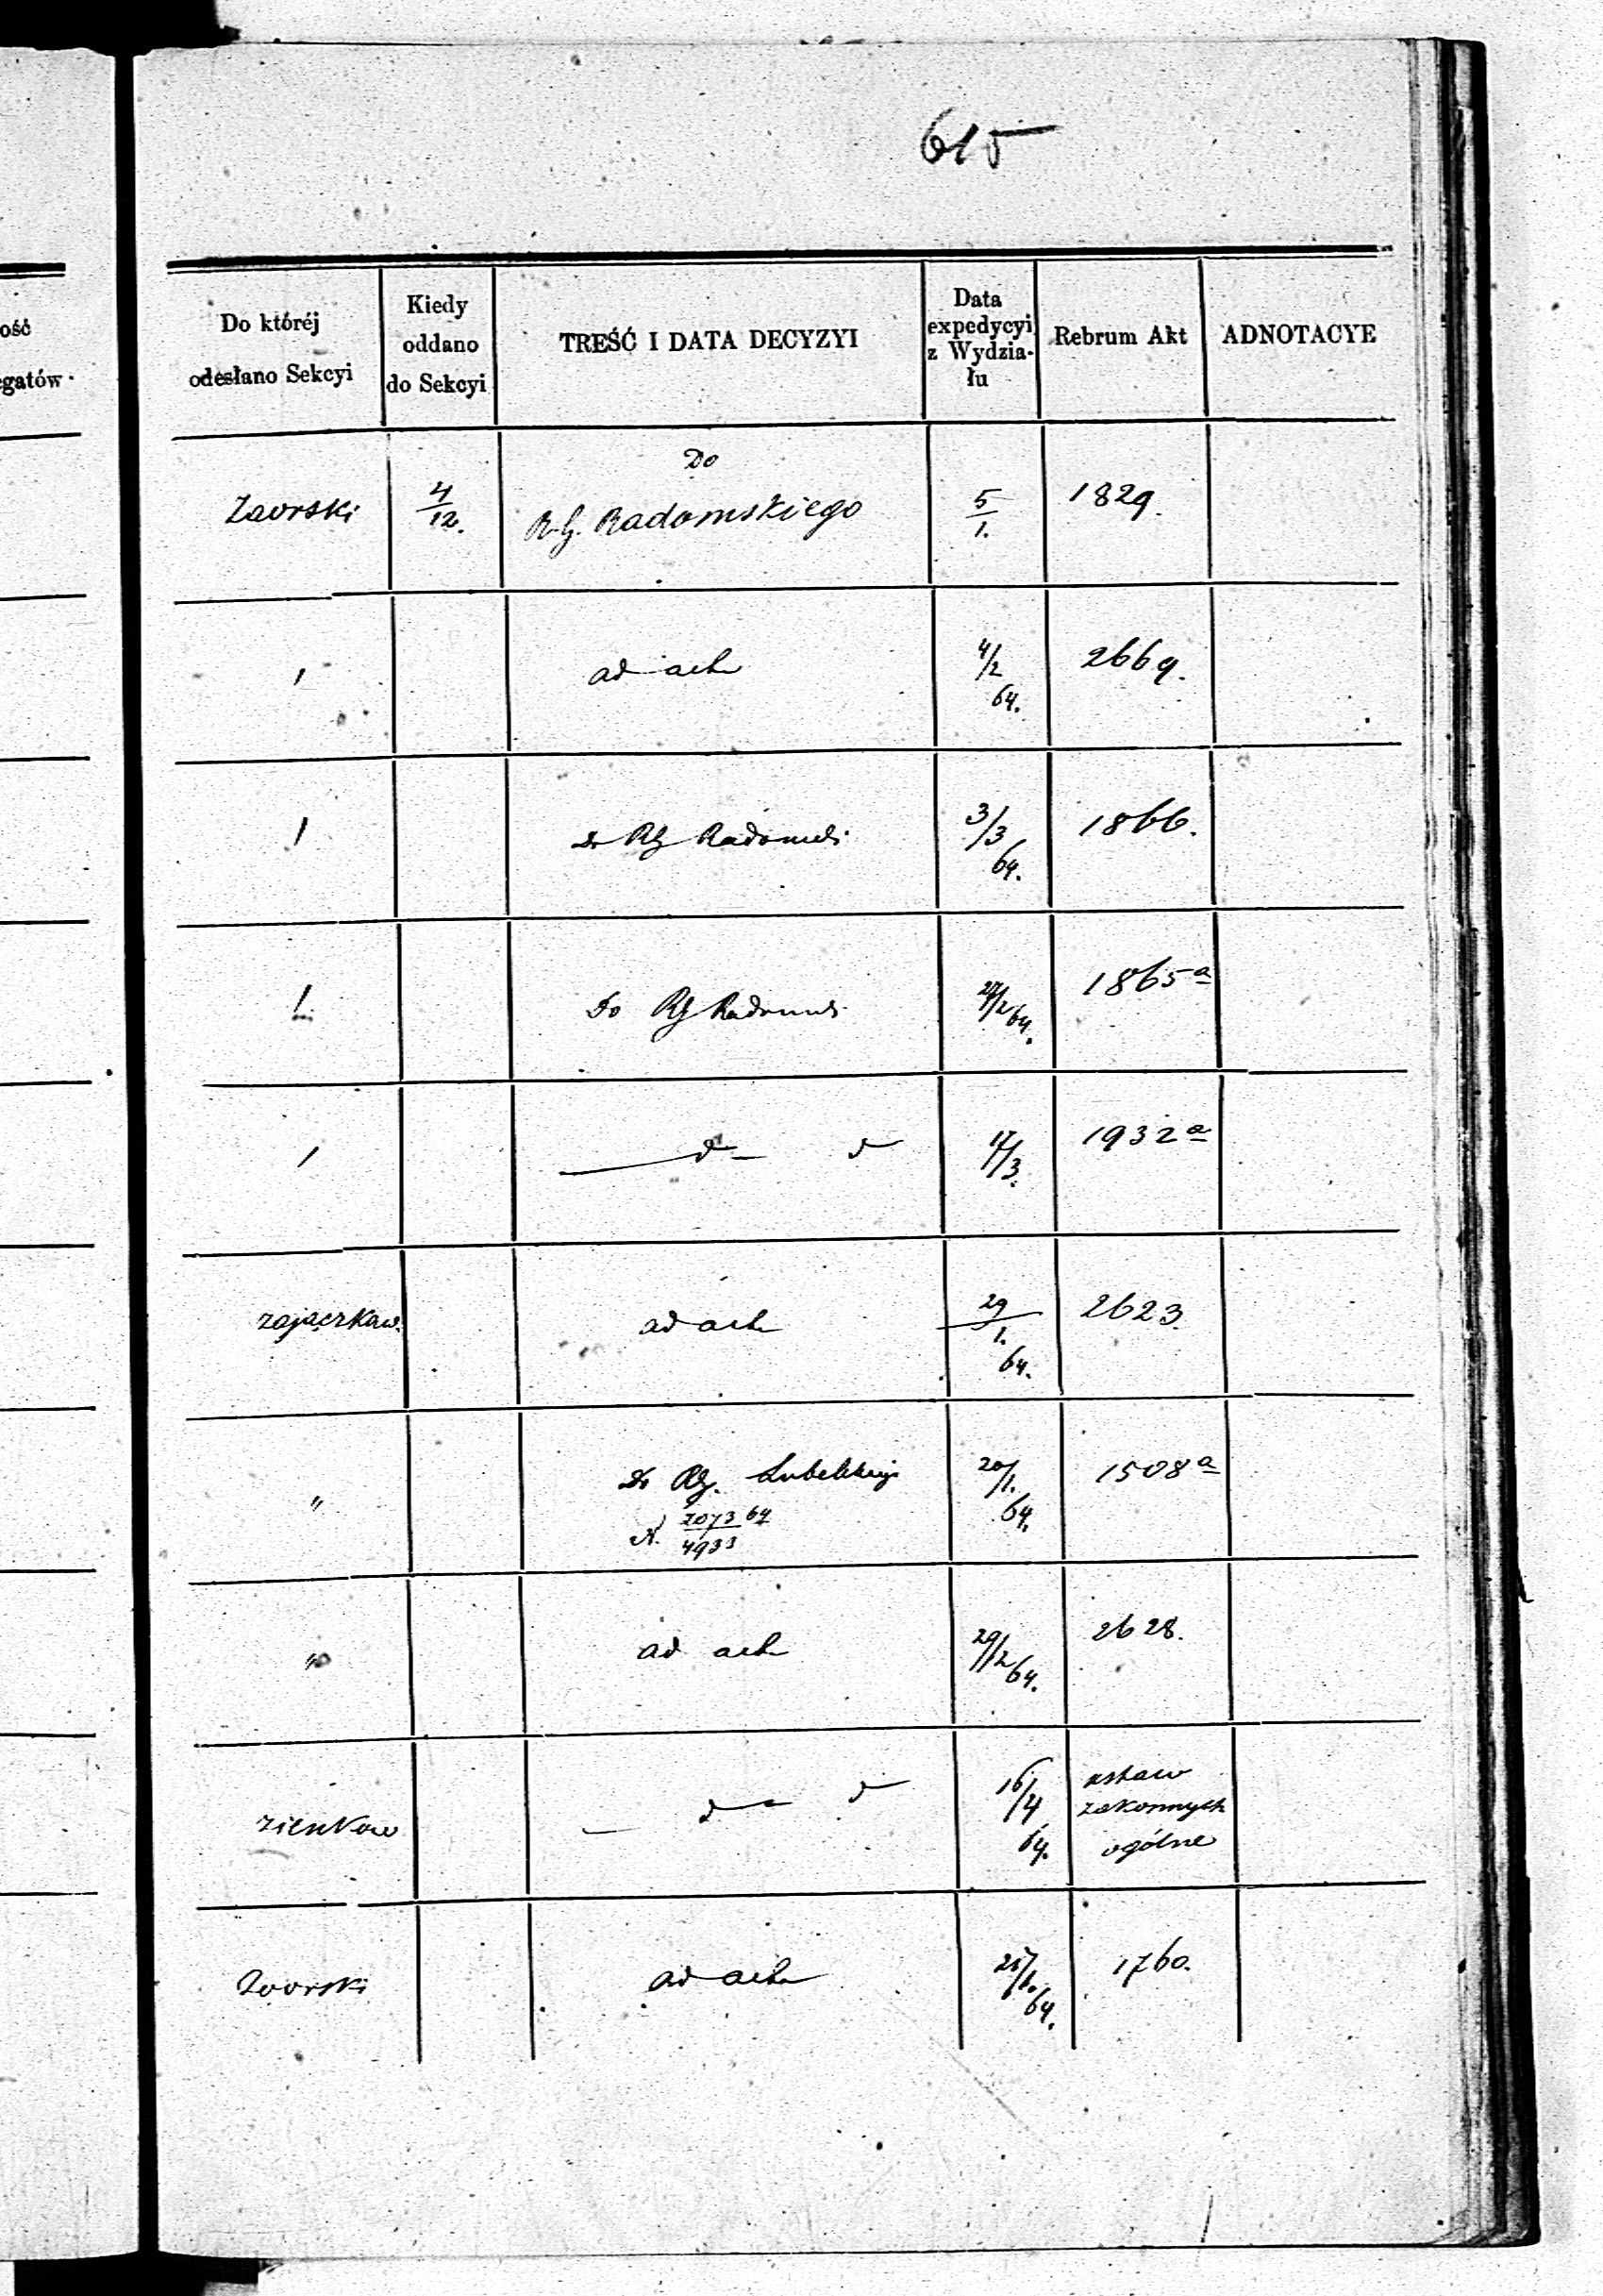 615
ość
egatów
Do któréj
odesłano Sekcyi
Kiedy
oddano
do Sekcyi
TREŚĆ I DATA DECYZYI
Data
expedycyi
z Wydzia-
łu
Rebrum Akt
ADNOTACYE
Do
Zaorski 4/12. R.G. Radomskiego 5/1. 1829.
" ad acta 4/2 64. 2669.
" Do RG Radomsk 3/3 64. 1866.
" Do RG Radomsk 27/2 64. 1865 a
" — d — d 17/3. 1932 a
Zajączkow. ad acta 29/1. 64. 2623.
" Do RG. Lubelskiego 20/1. 64. 1508 a
N. 2073/4933 64
" ad acta 29/2 64. 2628.
Zienkow — d — d 16/4 64. ustaw
zakonnych
ogólne
Zaorski ad acta 64. 1760.